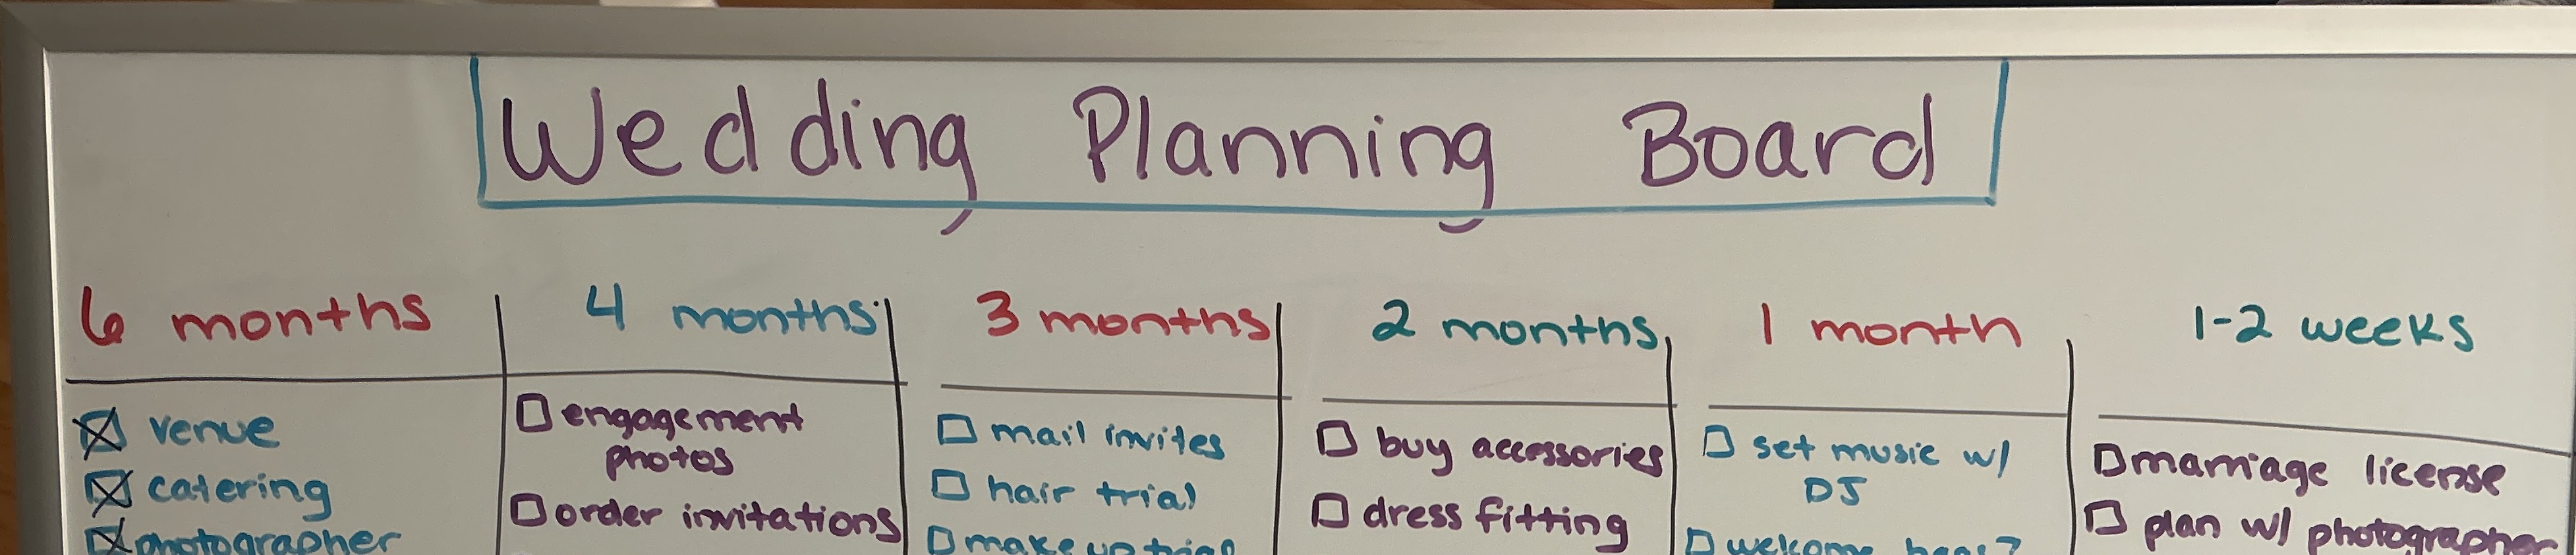 Wedding Planning Board
6 months
venue
catering
photographer
4 months
engagement
photos
order invitations
3 months
mail invites
hair trial
makeup trial
2 months
buy accessories
dress fitting
1 month
set music w/
DJ
welcome bags?
1-2 weeks
marriage license
plan w/ photographer